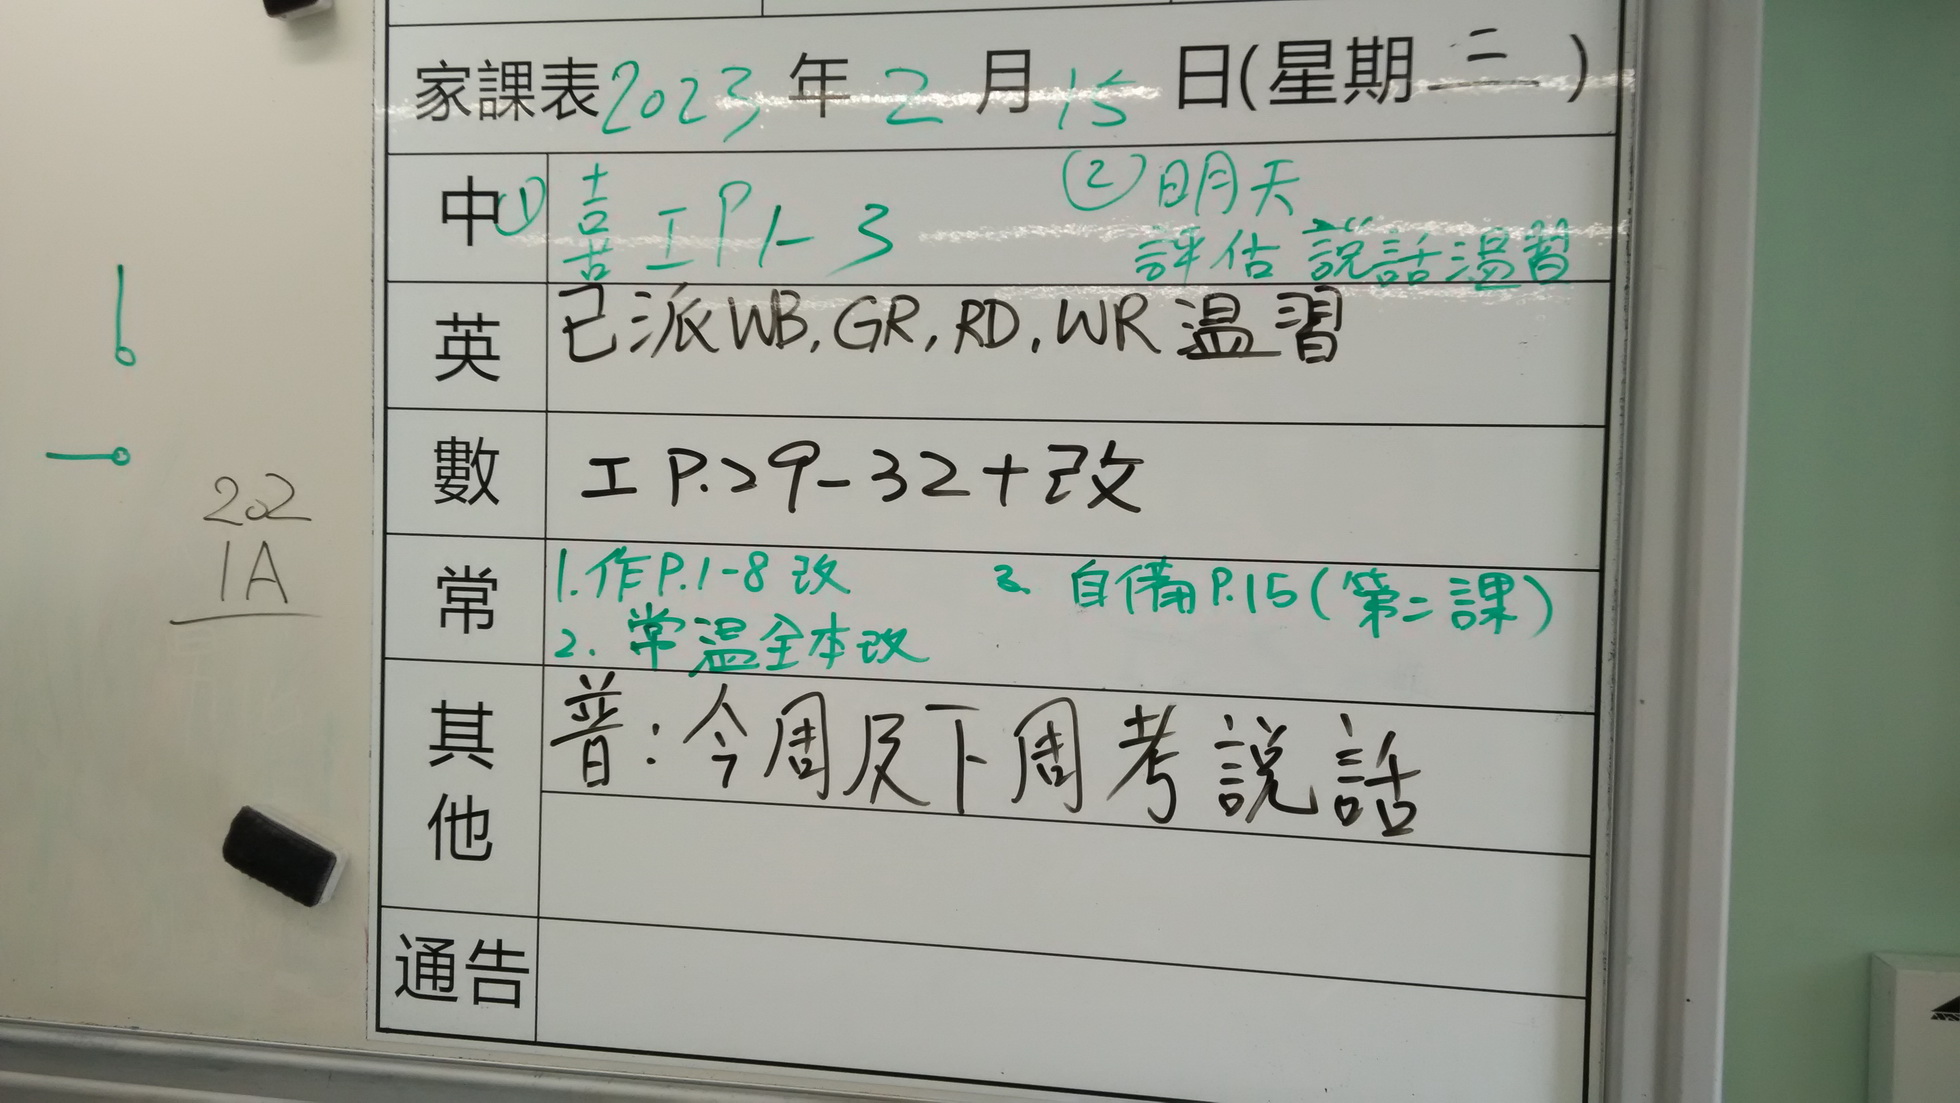 家課表2023年2月15日(星期三)
中 ① 工P1-3 ②明天
評估 說話溫習
英 已派WB,GR,RD,WR温習
數 工P.29-32+改
常 1.作P.1-8改 3. 自備P.15(第二課)
2.常温全本改
其他 普:今周及下周考說話
通告
202
1A